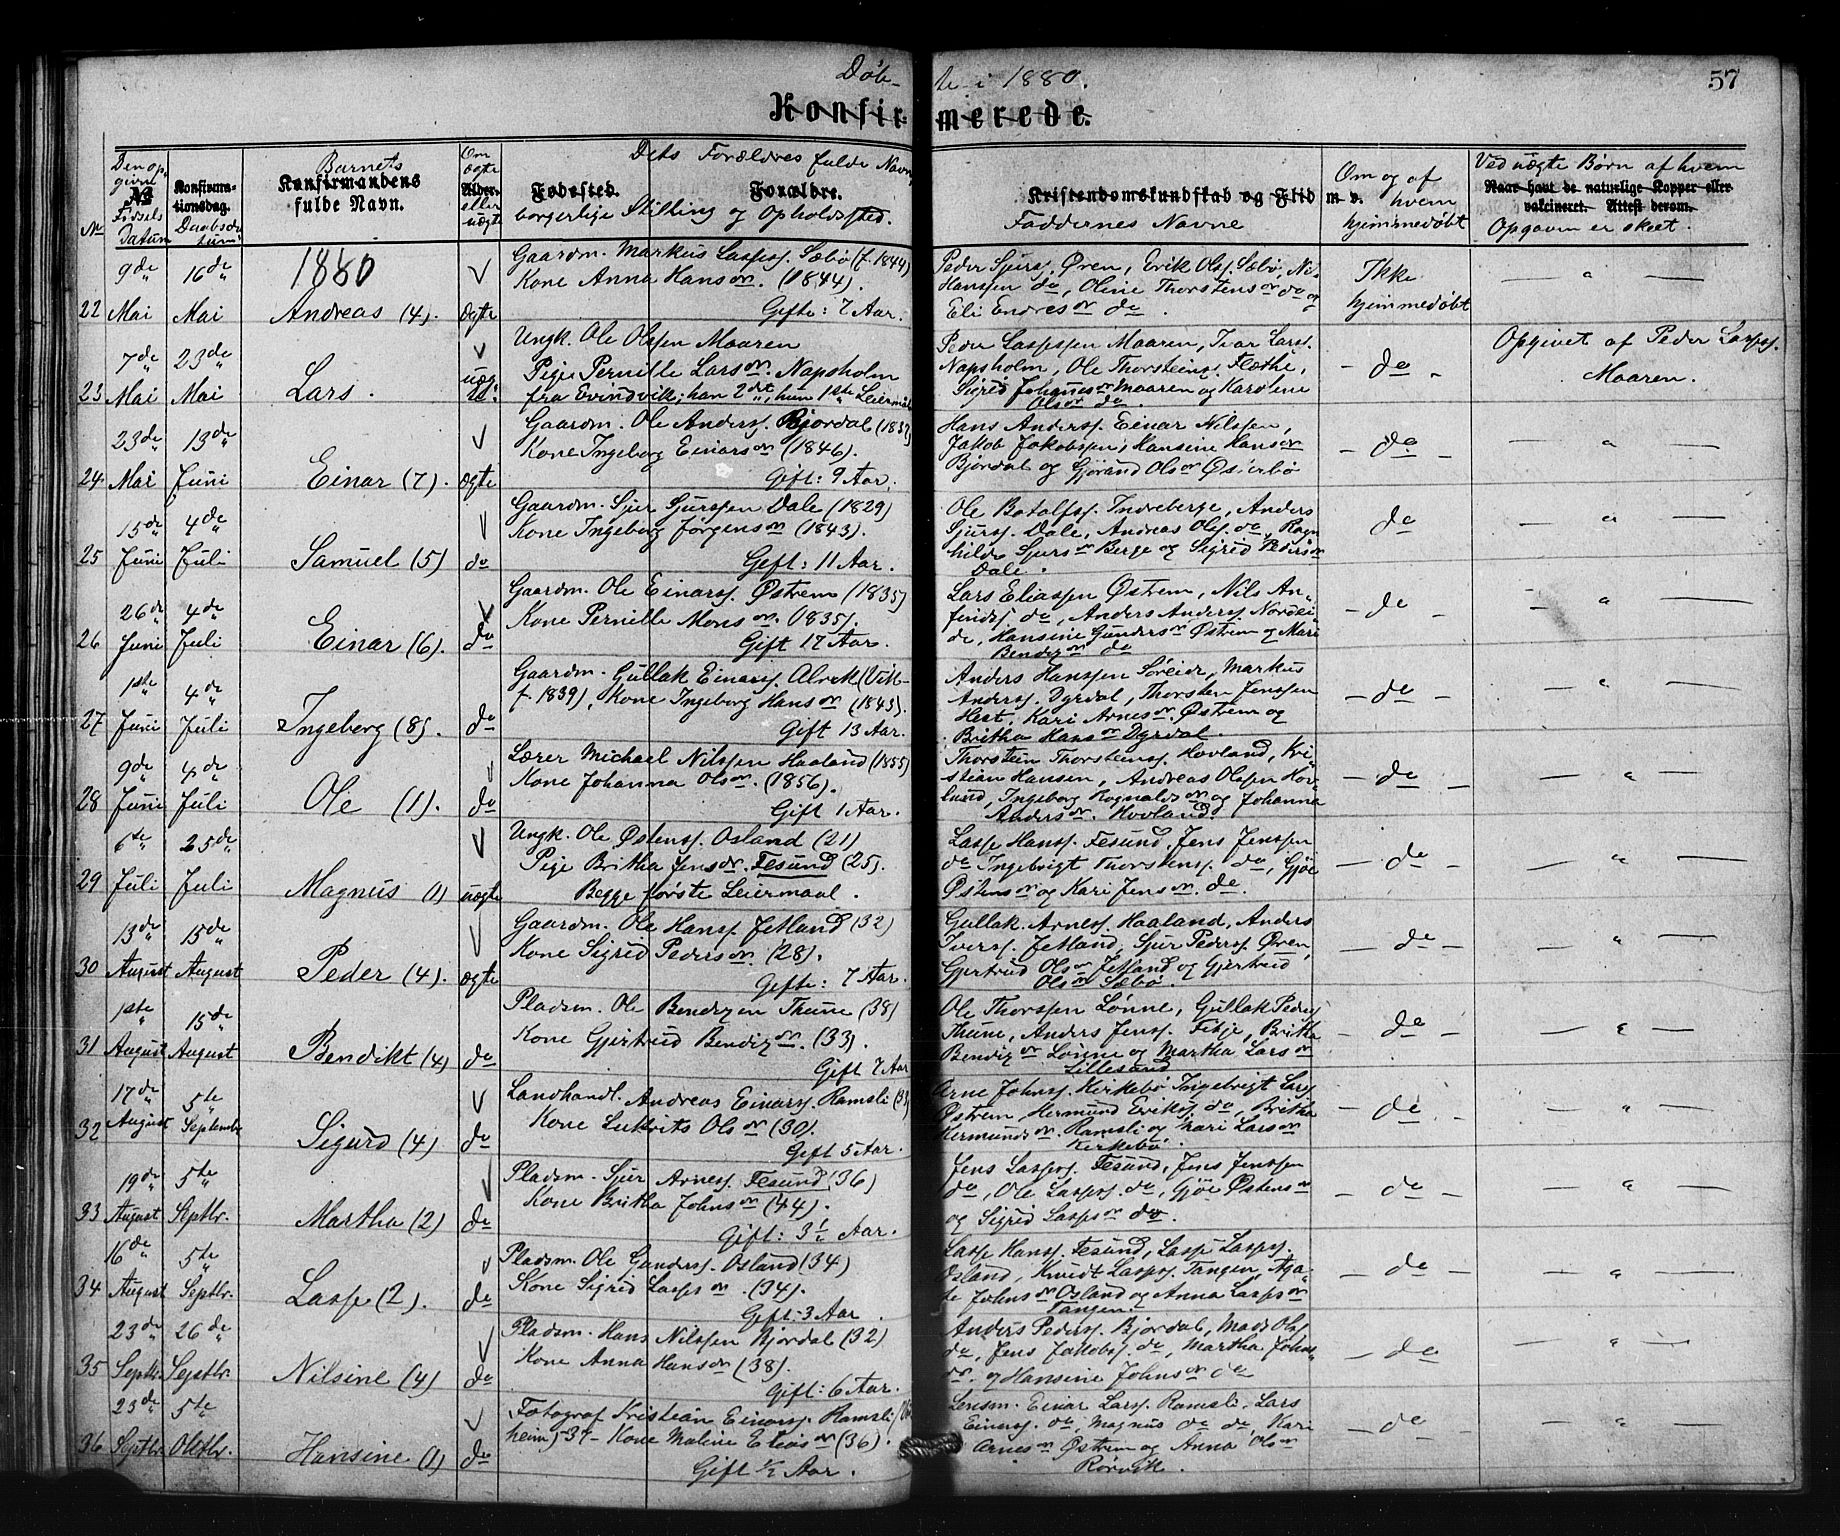 Døb- te i 1880. 57
Konfirmerede.
Den op-
givne
No
Fødsels
Datum
Konfirma-
tionsdag.
Daabsda-
tum
Barnets
Konfirmandens
fulde Navn.
Om
ægte
Alder.
eller
uægte
Dets Forældres fulde Navn
Fødested. Forældre.
borgerlige Stilling og Opholdssted.
Kristendomskundskab og Flid m. v.
Faddernes Navne
Om og af
hvem
hjemmedøbt
Ved uægte Børn af hvem
Naar havt de naturlige Kopper eller
vakcineret. Attest derom.
Opgaven er skeet.
1880
22 9de Mai 16de Mai Andreas (4). ægte
Gaardm. Markus Lasses. Sæbø (f. 1844)
Kone Anna Hansdr. (1844).
Gifte: 7 Aar.
Peder Sjurs. Øren, Erik Ols. Sæbø, Nils
Hanssen do, Oline Thorstensdr do og
Eli Endresdr do.
Ikke
hjemmedøbt
23 7de Mai 23de Mai Lars. uæg-
te.
Ungk. Ole Olssen Maaren
Pige Pernille Larsdr. Napsholm
fra Evindvik; han 2det, hun 1ste Leiermaal
Peder Lassesen Maaren, Ivar Lars.
Napsholm, Ole Thorsteins. Flæthe,
Sigrid Johannesdr Maaren og Karolene
Olsdr do
- do -
Opgivet af Peder Lasses.
Maaren.
24. 23de Mai 13de Juni Einar (7). ægte
Gaardm. Ole Anders. Bjordal (1837)
Kone Ingeborg Einarsdr (1846).
Gift: 9 Aar.
Hans Anders. Einar Nilssen,
Jakob Jakobssen, Hansine Hansdr
Bjordal og Gjørand Olsdr Østerbø
- do -
25 15de Juni 4de Juli Samuel (5) do
Gaardm. Sjur Sjurssen Dale (1829)
Kone Ingeborg Jørgensdr (1843).
Gift: 11 Aar.
Ole Botolfs. Indreberge, Anders
Sjurs. Dale, Andreas Ols. do, Ragn-
hilde Sjursdr Berge og Sigrid Pedersdr
Dale.
do
26 26de Juni 4de Juli Einar (6). do
Gaardm. Ole Einars. Østrem (1835)
Kone Pernille Monsdr. (1835).
Gift 17 Aar.
Lars Eliassen Østrem, Nils An-
finds. do, Anders Anders. Nordei-
de, Hansine Gundersdr Østrem og Mari
Bendixdr do
- do -
27 1ste Juni 4de Juli Ingeborg (8). do
Gaardm. Gullak Einars. Alvek (Vik-
f. 1839), Kone Ingeborg Hansdr (1843).
Gift 13 Aar.
Anders Hanssen Søreide, Markus
Anders. Dyrdal, Thorsten Jenssen
Hest, Kari Arnesdr. Østrem og
Britha Hansdr Dyrdal.
- do -
28 9de Juni 4de Juli Ole (1). do
Lærer Michael Nilssen Haaland (1855)
Kone Johanna Olsdr. (1856).
Gift 1 Aar.
Thorstein Thorsteins. Hovland, Kri-
stian Hansen, Andreas Olssen Hov-
lund, Ingeborg Rognaldsdr og Johanna
Andersdr. Hovland
- do -
29 6te Juli 25de Juli Magnus (1) uægte
Ungk. Ole Østens. Osland (21)
Pige Britha Jensdr. Tesund (25).
Begge første Leiermaal.
Lasse Hans. Tesund, Jens Jenssen
do, Ingebrigt Thorstens. do, Gjøe
Østensdr og Kari Jensdr. do.
- do -
30 13de August 15de August Peder (4). ægte
Gaardm. Ole Hans. Jetland (32)
Kone Sigrid Pedersdr. (28).
Gifte: 7 Aar.
Gullak Arnes. Haaland, Anders
Ivers. Jetland, Sjur Peders. Øren,
Gjertrud Olsdr Jetland og Gjertrud
Olsdr Sæbø.
- do -
31 1ste August 15de August Bendikt (4) do
Pladsm. Ole Bendixen Thune (38)
Kone Gjertrud Bendixdr. (33).
Gift 7 Aar
Ole Thorssen Lønne, Gullak Peders
Thune, Anders Jens. Tibje, Britha
Bendixdr Lønne og Martha Larsdr
Lillesand
- do -
32 17de August 5te Septembr Sigurd (4) do
Landhandl. Andreas Einars. Ramsli (33)
Kone Lukrits Olsdr (30).
Gift 5 Aar.
Arne Johns. Kirkebø Ingebrigt Lars.
Østrem, Hermund Eriks. do, Britha
Hermundsdr. Ramsli og Kari Larsdr
Kirkebø.
- do -
33 19de August 5te Septbr. Martha (2) do
Pladsm. Sjur Arnes. Tesund (36)
Kone Britha Johnsdr (44).
Gift: 3½ Aar.
Jens Lasses. Tesund, Jens Jenssen
do, Ole Lasses. do, Gjøe Østensdr
og Sigrid Lassesdr do.
- do -
34 16de August 5te Septbr. Lasse (2). do
Pladsm. Ole Gunders. Osland (34)
Kone Sigrid Lassesdr. (34).
Gift: 3 Aar
Lasse Hans. Tesund, Lasse Lasses.
Osland, Knudt Lasses. Tangen, Aga-
te Johnsdr Osland og Anna Lassesdr
Tangen.
- do -
35 23de Septbr. 26de Septbr. Nilsine (4) do
Pladsm. Hans Nilssen Bjordal (32)
Kone Anna Hansdr (38).
Gift: 6 Aar.
Anders Peders. Bjordal, Mads Ols.
do, Jens Jakobs. do, Martha Johns-
dr. og Hansine Johnsdr do
- do -
36 23de Septbr 5te Oktbr. Hansine (1) do
Fotograf Kristian Einars. Ramsli
heim) -37- Kone Maline Eliasdr (36).
Gift ½ Aar.
Lensm. Einar Lars. Ramsli, Lars
Einars. do, Magnus do do, Kari
Arnesdr Østrem og Anna Olsdr
Rørvik.
- do -